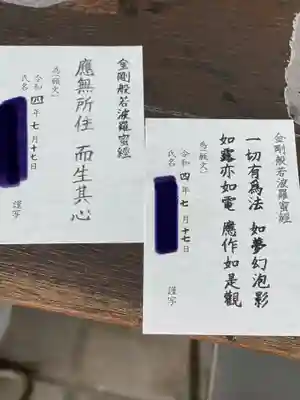 金剛般若波羅蜜經
應無所住 而生其心
為(願文)
令和四年七月十七日
氏名
謹写
金剛般若波羅蜜經
一切有為法 如夢幻泡影
如露亦如電 應作如是觀
為(願文)
令和四年七月十七日
氏名
謹写